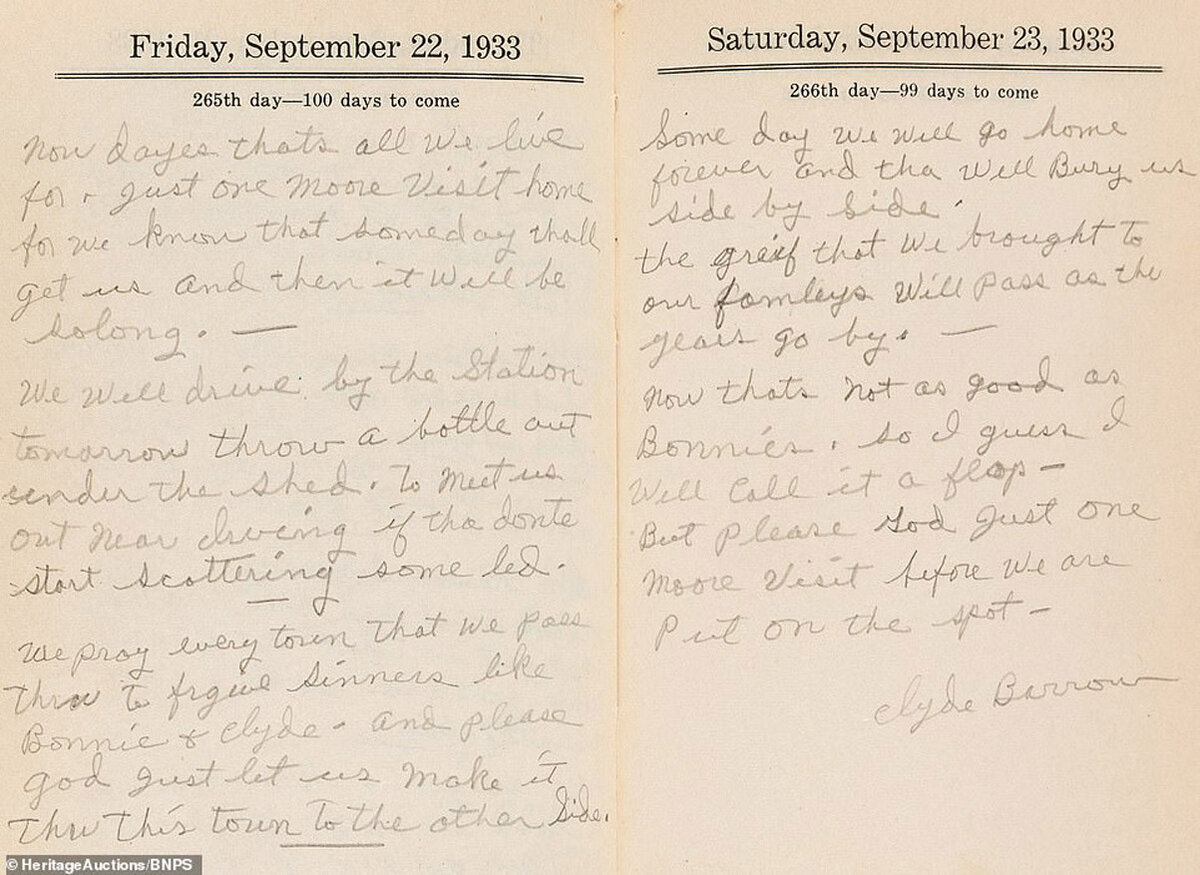 Friday, September 22, 1933
265th day—100 days to come
Now dayes thats all we live
for - Just one Moore Visit home
for we know that someday thall
get us and then it Will be
solong. —
We Will drive by the Station
tomarrow throw a bottle out
under the shed. To Meet us
out Near if tha donte
start scattering some led.
—
We pray every town that we pass
thru to frgive sinners like
Bonnie & Clyde - and please
god Just let us make it
thru this town to the other side.
Saturday, September 23, 1933
266th day—99 days to come
Some day we will go home
forever and tha Will Bury us
side by side.
the greif that we brought to
our famleys Will pass as the
years go by. —
Now thats Not as good as
Bonnies. so I guess I
Will Call it a flop -
But Please God Just one
Moore Visit before We are
Put on the spot -
Clyde Barrow
© HeritageAuctions/BNPS